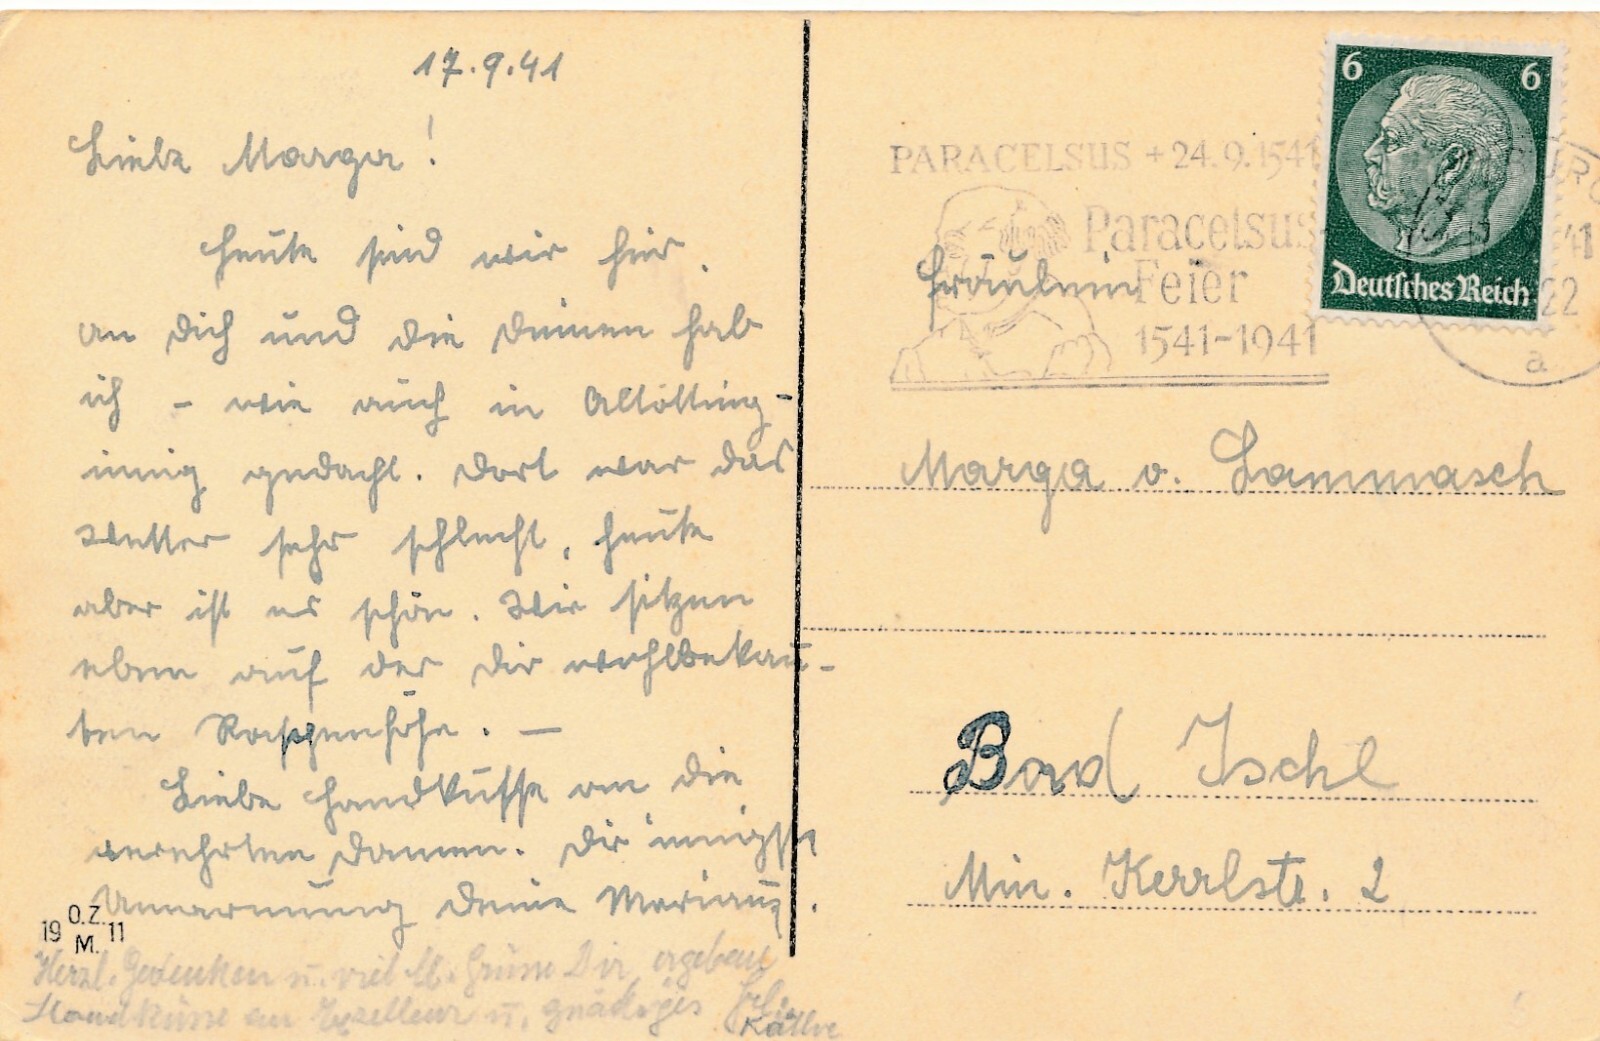 17.9.41
Liebe Marga!
Heute sind wir hier.
An Dich und die Deinen hab
ich - wie auch in Altötting -
innig gedacht. Dort war das
Wetter sehr schlecht, heute
aber ist es schön. Wir sitzen
eben auf der Dir wohlbekan-
ten
Liebe Handküsse an die
verehrten Damen. Dir innigste
Umarmung Deine
19 O.Z. M. 11
Herzl. Gedenken u. viel lb. Grüsse Dir, ergebene
Handküsse an Exzellenz u. gnädiges Frl.
Käthe
PARACELSUS + 24.9.1541
Paracelsus-
Feier
1541-1941
6 6
Deutsches Reich
41
22
a
Fräulein
Marga v. Lammasch
Bad Ischl
Min. Kerrlstr. 2